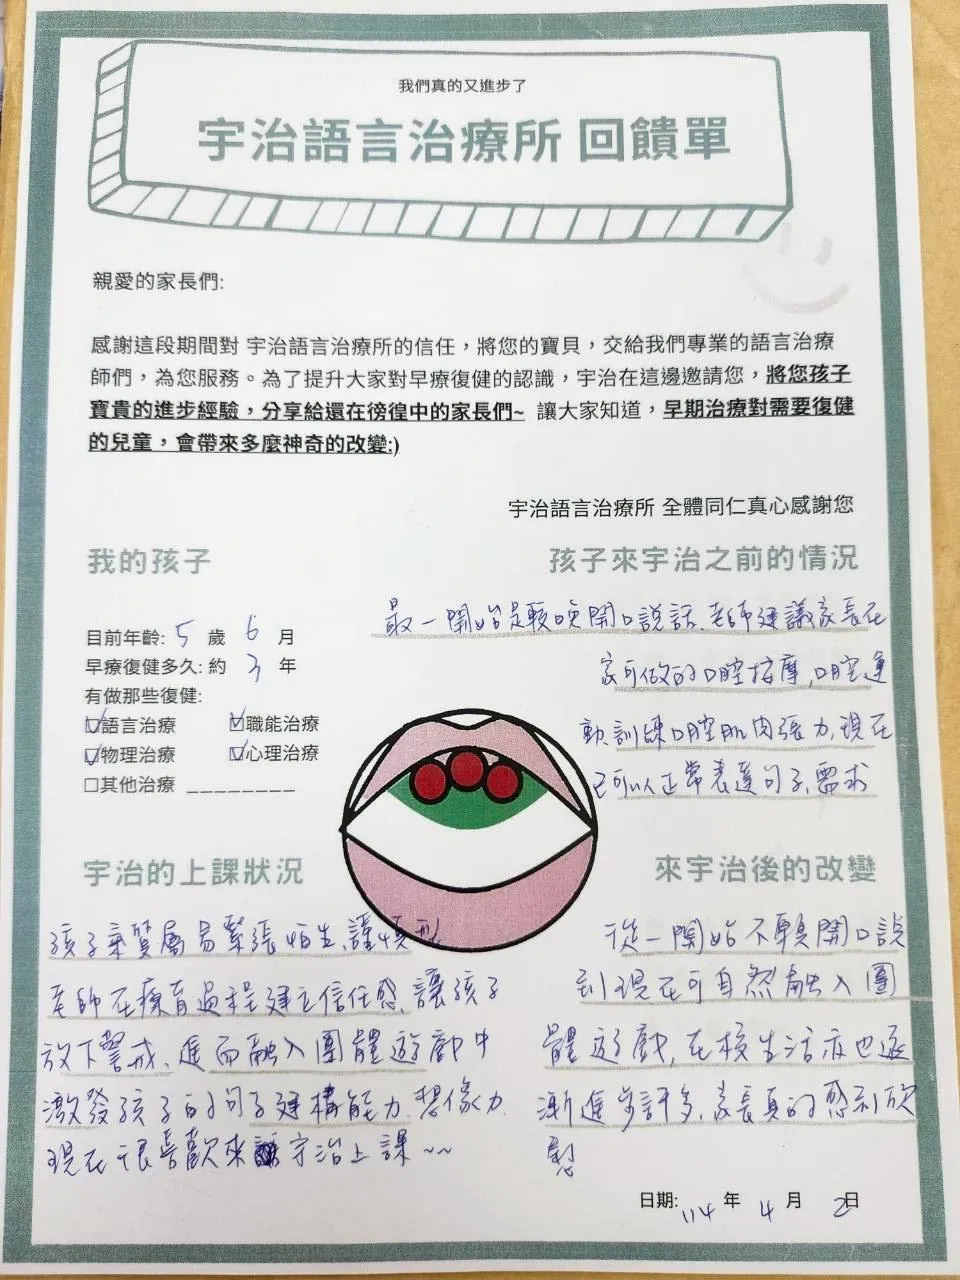 我們真的又進步了
宇治語言治療所 回饋單
親愛的家長們:
感謝這段期間對 宇治語言治療所的信任，將您的寶貝，交給我們專業的語言治療
師們，為您服務。為了提升大家對早療復健的認識，宇治在這邊邀請您，將您孩子
寶貴的進步經驗，分享給還在徬徨中的家長們~ 讓大家知道，早期治療對需要復健
的兒童，會帶來多麼神奇的改變:)
宇治語言治療所 全體同仁真心感謝您
我的孩子
目前年齡: 5 歲 6 月
早療復健多久: 約 3 年
有做那些復健:
☑語言治療 ☑職能治療
☑物理治療 ☑心理治療
☐其他治療 ________
孩子來宇治之前的情況
最一開始是較晚開口說話、老師建議家長在
家可做的口腔按摩,口腔運
動訓練口腔肌肉張力,現在
已可以正常表達句子、需求
宇治的上課狀況
孩子氣質屬易緊張怕生、謹慎型
老師在療育過程建立信任感、讓孩子
放下警戒、進而融入團體遊戲中
激發孩子的句子建構能力、想像力、
現在很喜歡來宇治上課~~
來宇治後的改變
從一開始不願開口說
到現在可自然融入團
體遊戲,在校生活亦也逐
漸進步許多、家長真的感到欣
慰
日期: 114 年 4 月 2日